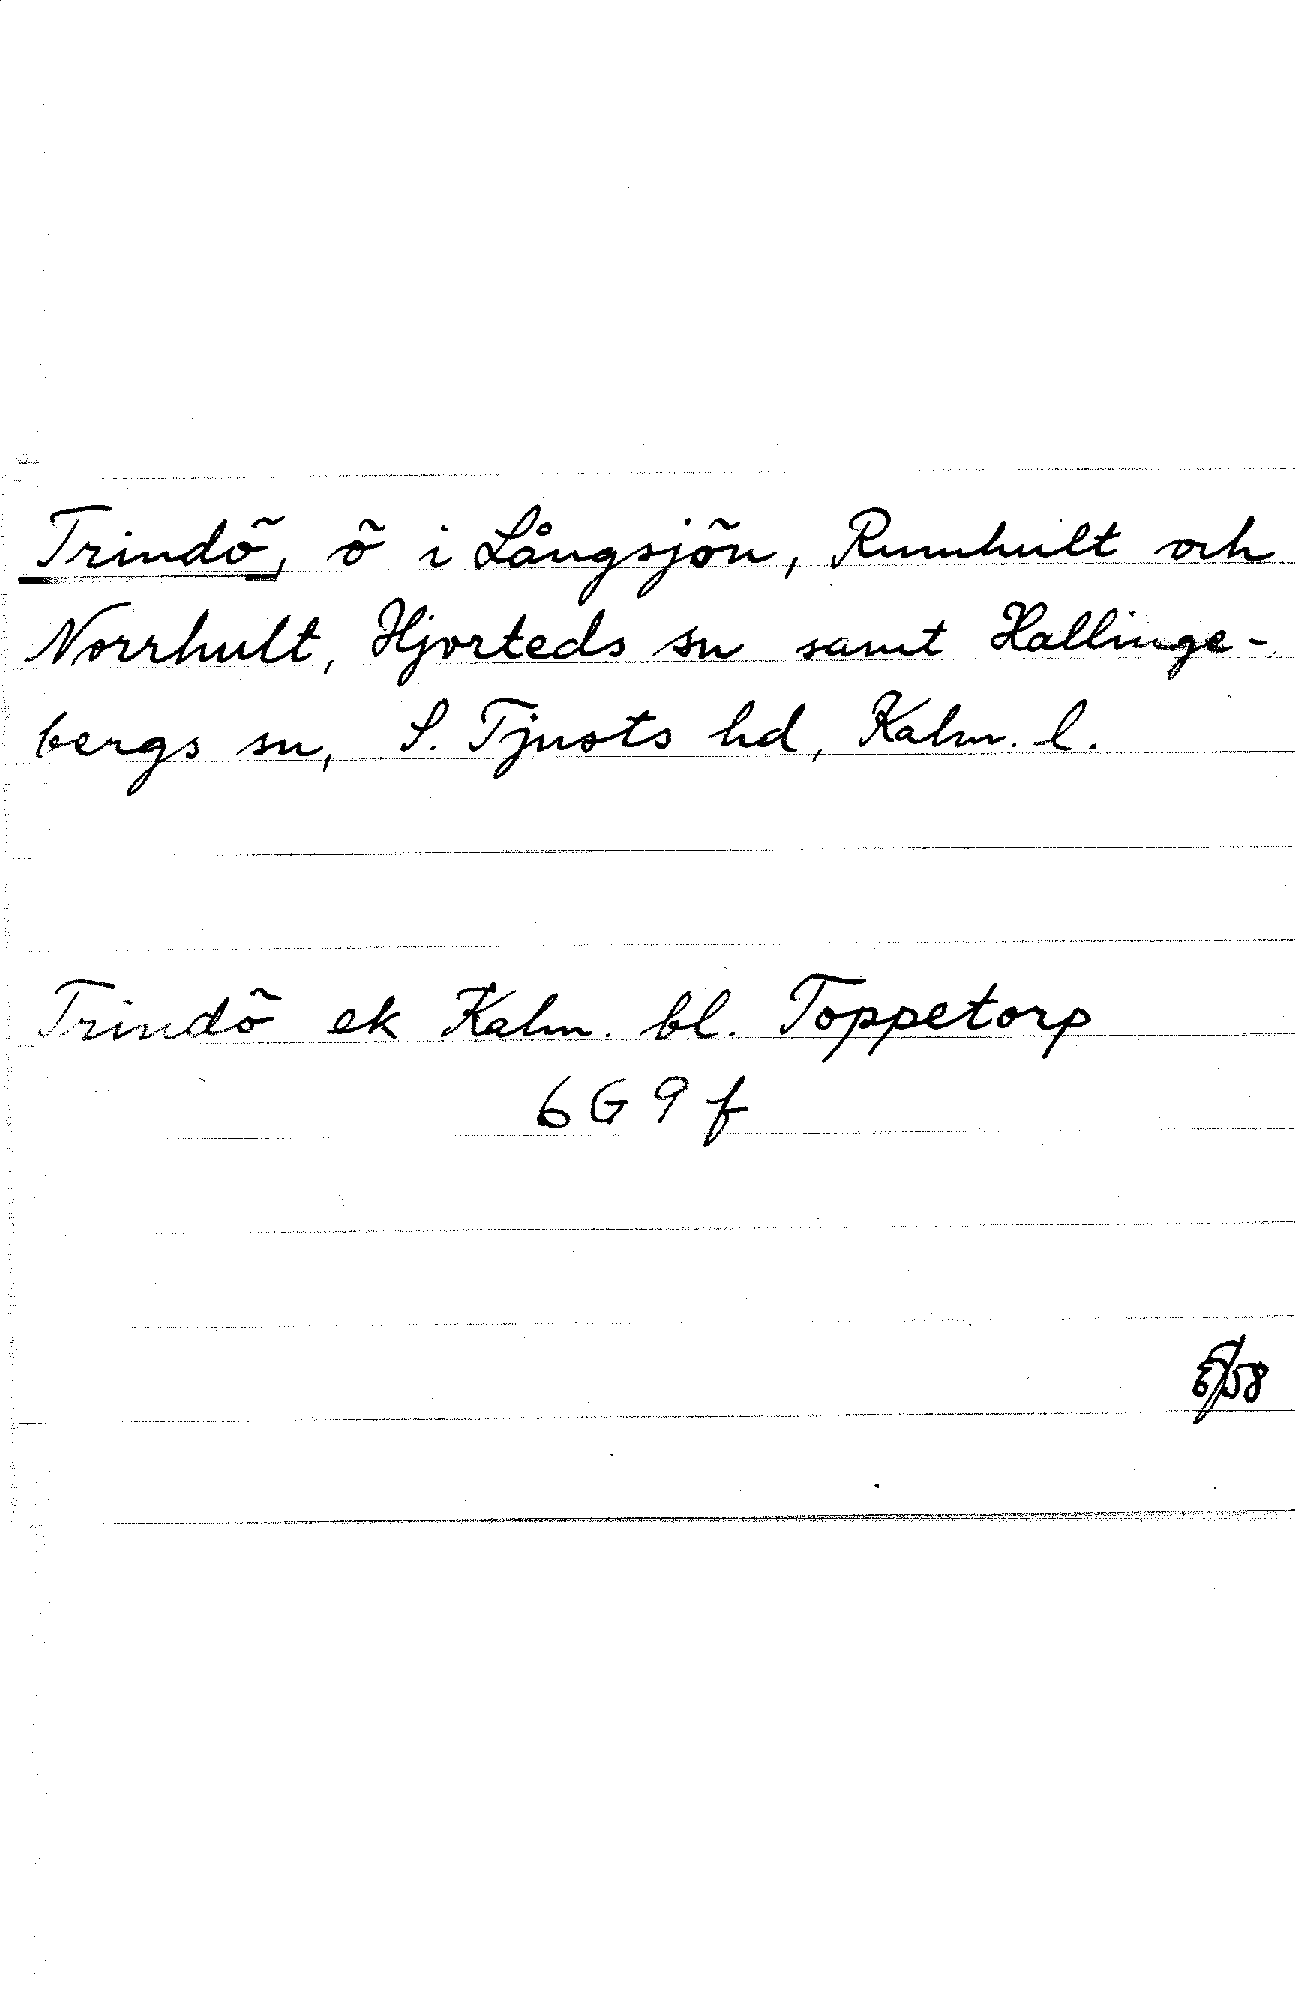 Trindö, ö i Långsjön, Rumhult och
Norrhult, Hjorteds sn samt Hallinge-
bergs sn, S. Tjusts hd, Kalm. l.
Trindö ek Kalm. bl. Toppetorp
6G9f